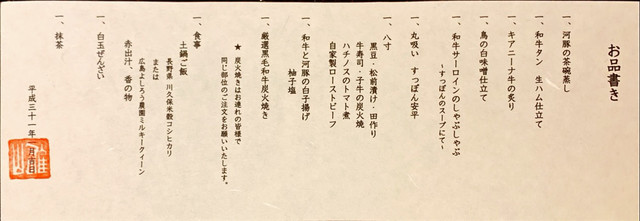 お品書き
一、河豚の茶碗蒸し
一、和牛タン 生ハム仕立て
一、キアニーナ牛の炙り
一、鳥の白味噌仕立て
一、和牛サーロインのしゃぶしゃぶ
～すっぽんのスープにて～
一、丸吸い すっぽん安平
一、八寸
黒豆・松前漬け・田作り
牛寿司・子牛の炭火焼
ハチノスのトマト煮
自家製ローストビーフ
一、和牛と河豚の白子揚げ
柚子塩
一、厳選黒毛和牛炭火焼き
★ 炭火焼きはお連れの皆様で
同じ部位のご注文をお願いいたします。
一、食事
土鍋ご飯
長野県 川久保米穀コシヒカリ
または
広島よしろう農園ミルキークイーン
赤出汁、香の物
一、白玉ぜんざい
一、抹茶
平成三十一年